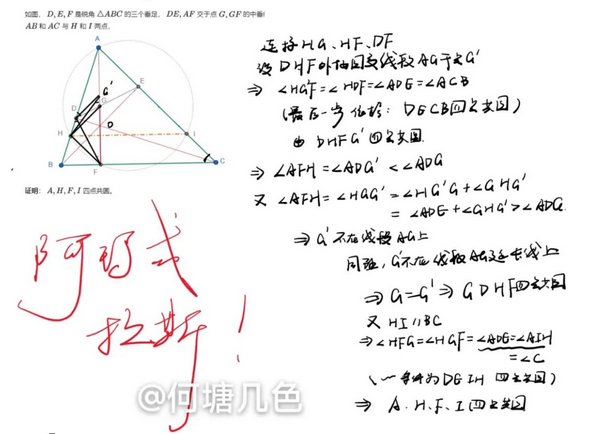 如图，D,E,F 是锐角 △ABC 的三个垂足，DE,AF 交于点 G,GF 的中垂
AB 和 AC 与 H 和 I 两点。
A
E
G'
G
D
H
I
B
F
C
证明：A,H,F,I 四点共圆。
连接HG、HF、DF
设DHF外接圆与线段AG于点G'
⇒ ∠HG'F=∠HDF=∠ADE=∠ACB
(最后一步依据：DECB四点共圆)
由DHFG'四点共圆
⇒ ∠AFH=∠ADG'<∠ADG
又 ∠AFH=∠HGG'=∠HG'G+∠GHG'
=∠ADE+∠GHG'>∠ADG.
⇒ G'不在线段AG上
同理，G'不在线段AG延长线上
⇒ G=G' ⇒ GDHF四点共圆
又 HI∥BC
⇒∠HFG=∠HGF=∠ADG=∠AIH
=∠C
(~~等价为DGIH四点共圆)
⇒ A、H、F、I四点共圆
阿玛忒
拉斯！
@何塘几色